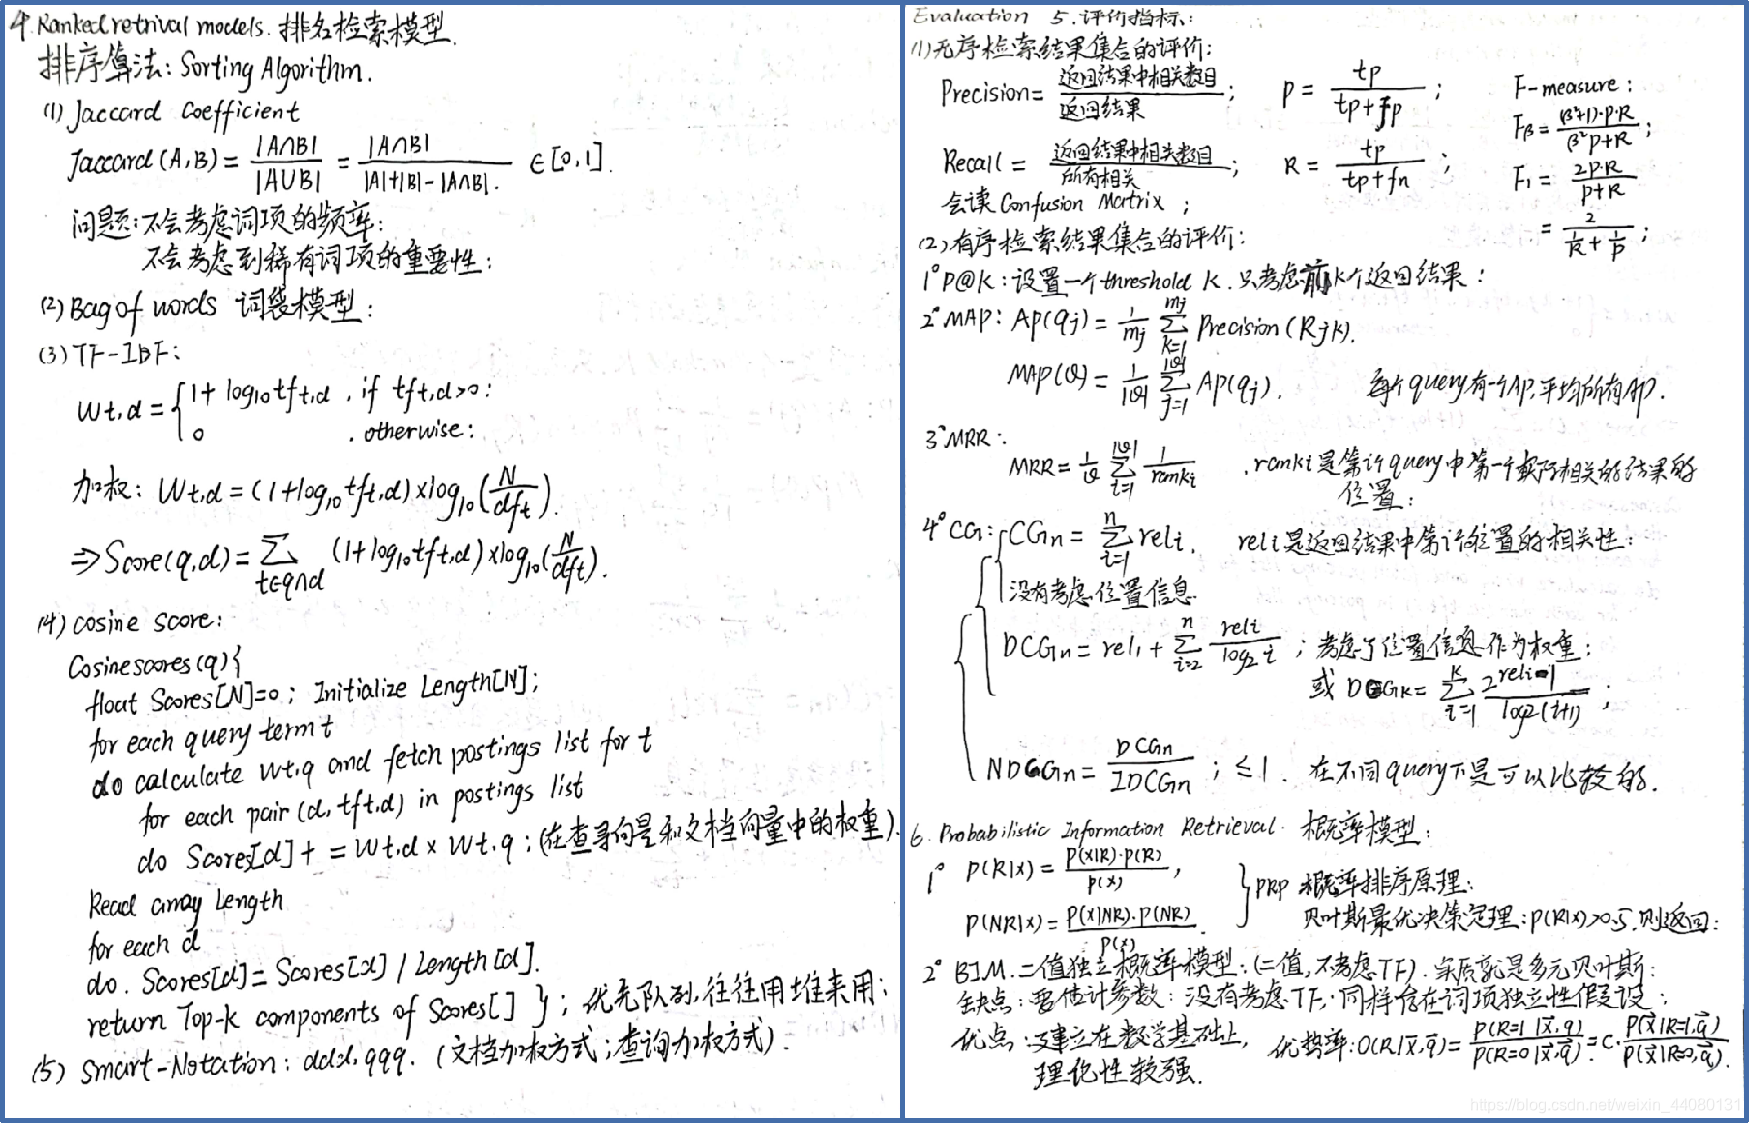 4. Ranked retrival models. 排名检索模型.
排序算法: Sorting Algorithm.
(1) Jaccard Coefficient
Jaccard (A,B) = |A∩B| / |A∪B| = |A∩B| / |A|+|B|-|A∩B|. ∈[0,1].
问题: 不会考虑词项的频率;
不会考虑到稀有词项的重要性;
(2) Bag of words 词袋模型;
(3) TF-IDF:
Wt,d = { 1+ log10 tft,d , if tft,d>0;
0 , otherwise;
加权: Wt,d = (1+log10 tft,d) × log10 (N/dft).
⇒ Score(q,d) = ∑t∈q∩d (1+log10 tft,d) × log10 (N/dft).
(4) cosine score:
Cosinescores(q){
float Scores[N]=0; Initialize Length[N];
for each query term t
do calculate wt,q and fetch postings list for t
for each pair (d, tft,d) in postings list
do Scores[d] += Wt,d × Wt,q ; (在查寻向量和文档向量中的权重).
Read array Length
for each d
do. Scores[d] = Scores[d] / Length[d].
return Top-k components of Scores[] } ; 优先队列,往往用堆来用;
(5) Smart-Notation: ddd.qqq. (文档加权方式;查询加权方式).
Evaluation 5. 评价指标:
(1) 无序检索结果集合的评价:
Precision= 返回结果中相关数目 / 返回结果 ; P = tp / tp+fp ; F-measure:
Fβ = (β²+1)·P·R / β²P+R ;
Recall = 返回结果中相关数目 / 所有相关 ; R = tp / tp+fn ; F1 = 2P·R / P+R
会读 Confusion Matrix ;
= 2 / 1/R + 1/P ;
(2) 有序检索结果集合的评价:
1° P@K: 设置一个threshold K. 只考虑前K个返回结果;
2° MAP: AP(qj) = 1/mj ∑k=1 mj Precision (Rjk).
MAP(Q) = 1/|Q| ∑j=1 |Q| AP(qj). 每个query有一个AP,平均所有AP.
3° MRR:
MRR = 1/Q ∑i=1 |Q| 1/ranki . ranki是第i个query中第一个实际相关的结果的
位置;
4° CG: CGn = ∑i=1 n reli. reli是返回结果中第i个位置的相关性;
没有考虑位置信息
DCGn = rel1 + ∑i=2 n reli / log2 i ; 考虑了位置信息作为权重;
或 DCGK = ∑i=1 K 2^reli-1 / log2(i+1) ;
NDCGn = DCGn / IDCGn ; ≤1. 在不同query下是可以比较的.
6. Probabilistic Information Retrieval. 概率模型;
1° P(R|x) = P(x|R)·P(R) / P(x) ,
PRP 概率排序原理;
P(NR|x) = P(x|NR)·P(NR) / P(x) .
贝叶斯最优决策定理: P(R|x)>0.5, 则返回;
2° BIM. 二值独立概率模型: (二值,不考虑TF). 实质就是多元贝叶斯;
缺点: 要估计参数; 没有考虑TF; 同样存在词项独立性假设;
优点: 建立在数学基础上, 优势率: O(R|x⃗,q⃗) = P(R=1|x⃗,q⃗) / P(R=0|x⃗,q⃗) = C· P(x⃗|R=1,q⃗) / P(x⃗|R=0,q⃗).
理论性较强.
https://blog.csdn.net/weixin_44080131